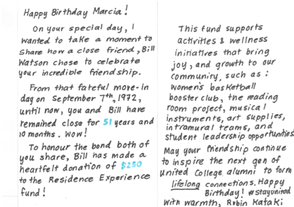 Happy Birthday Marcia!
On your special day, I
wanted to take a moment to
share how a close friend, Bill
Watson chose to celebrate
your incredible friendship.
From that fateful move-in
day on September 7th, 1972,
until now, you and Bill have
remained close for 51 years and
10 months. Wow!
To honour the bond both of
you share, Bill has made a
heartfelt donation of $250
to the Residence Experience
fund!
This fund supports
activities & wellness
initiatives that bring
joy, and growth to our
community, such as:
Women's basketball
booster club, the reading
room project, musical
instruments, art supplies,
intramural teams, and
student leadership opportunities
May your friendship continue
to inspire the next gen of
United College alumni to form
lifelong connections. Happy
Birthday! #stayunited
with warmth, Robin Kataki